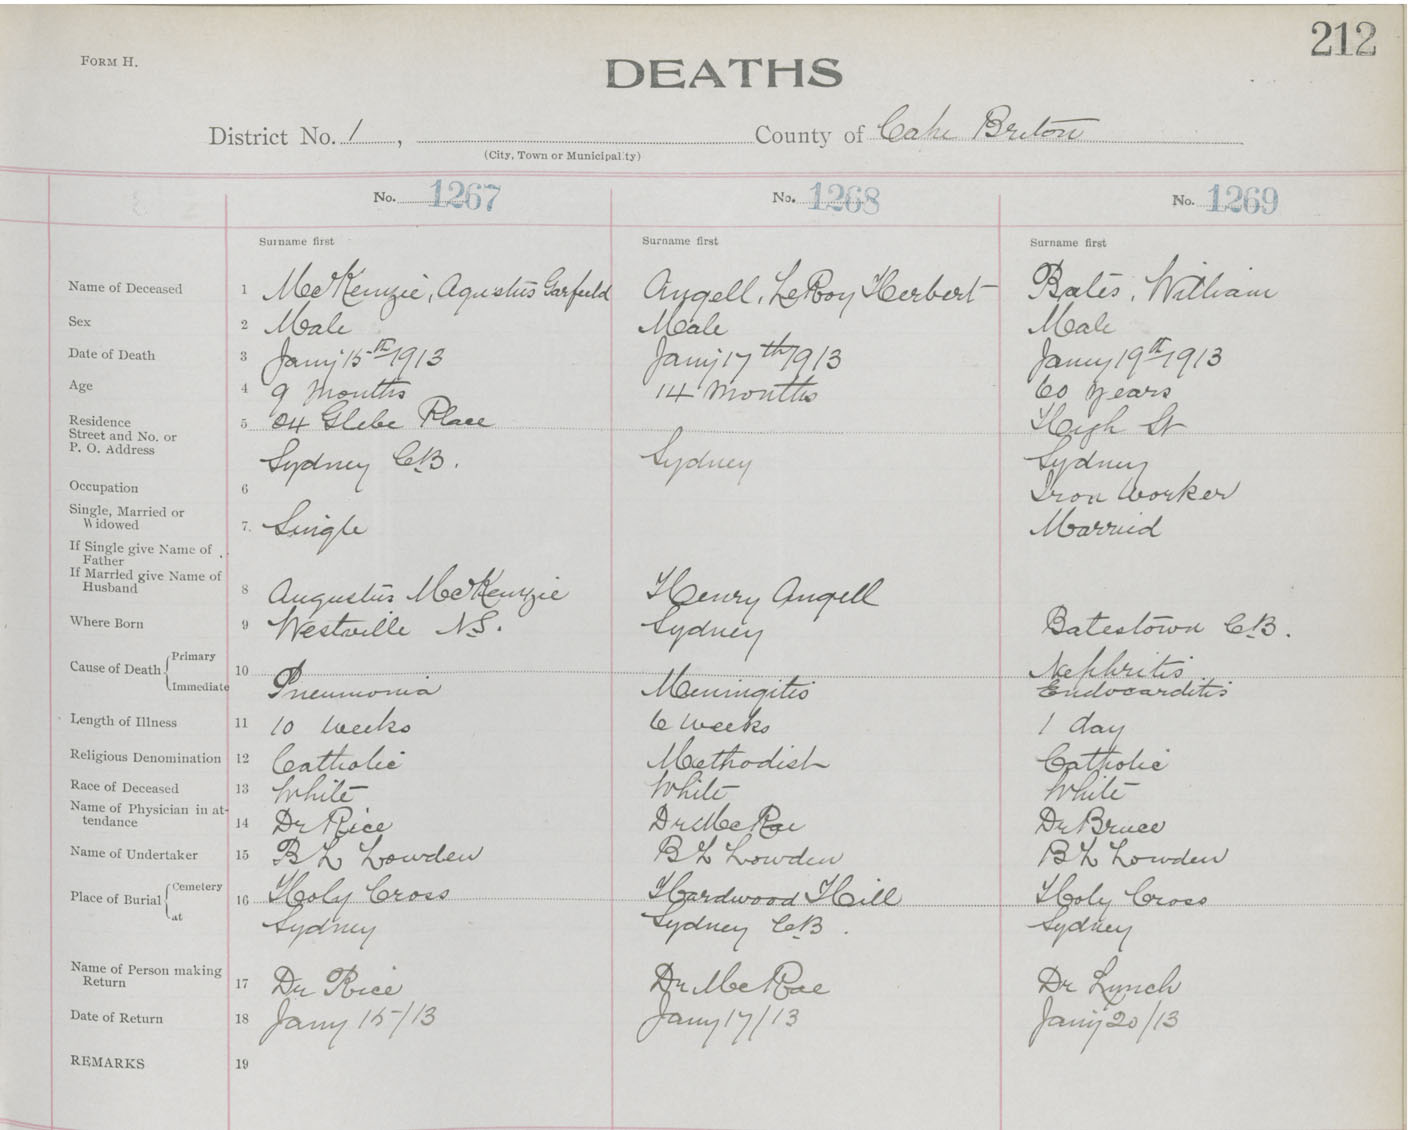 212
FORM H.
DEATHS
District No. 1, County of Cape Breton
(City, Town or Municipality)
No. 1267 No. 1268 No. 1269
Surname first Surname first Surname first
Name of Deceased 1 McKenzie, Agustus Garfield Angell, LeRoy Herbert Bates, William
Sex 2 Male Male Male
Date of Death 3 Jany 15th 1913 Jany 17th 1913 Janey 19th 1913
Age 4 9 Months 14 Months 60 years
Residence 5 84 Glebe Place High St
Street and No. or
P. O. Address Sydney C.B. Sydney Sydney
Occupation 6 Iron Worker
Single, Married or
Widowed 7. Single Married
If Single give Name of
Father
If Married give Name of
Husband 8 Augustus McKenzie Henry Angell
Where Born 9 Westville N.S. Sydney Batestown C.B.
Cause of Death Primary 10 Nephritis
Immediate Pneumonia Meningitis Endocarditis
Length of Illness 11 10 weeks 6 weeks 1 day
Religious Denomination 12 Catholic Methodist Catholic
Race of Deceased 13 White White White
Name of Physician in at-
tendance 14 Dr Rice Dr McRae Dr Bruce
Name of Undertaker 15 B L Lowden B L Lowden B L Lowden
Place of Burial Cemetery 16 Holy Cross Hardwood Hill Holy Cross
at Sydney Sydney C.B. Sydney
Name of Person making
Return 17 Dr Rice Dr McRae Dr Lynch
Date of Return 18 Jany 15/13 Jany 17/13 Jany 20/13
REMARKS 19